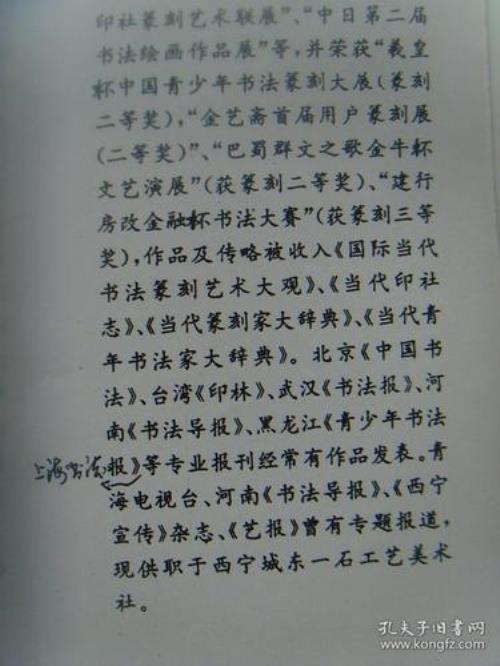 印社篆刻艺术联展”、“中日第二届
书法绘画作品展”等,并荣获“羲皇
杯中国青少年书法篆刻大展(篆刻
二等奖),“金艺斋首届用户篆刻展
(二等奖)”、“巴蜀群文之歌金牛杯
文艺演展”(获篆刻二等奖)、“建行
房改金融杯书法大赛”(获篆刻三等
奖),作品及传略被收入《国际当代
书法篆刻艺术大观》、《当代印社
志》、《当代篆刻家大辞典》、《当代青
年书法家大辞典》。北京《中国书
法》、台湾《印林》、武汉《书法报》、河
南《书法导报》、黑龙江《青少年书法
上海书法
报》等专业报刊经常有作品发表。青
海电视台、河南《书法导报》、《西宁
宣传》杂志、《艺报》曾有专题报道,
现供职于西宁城东一石工艺美术
社。
孔夫子旧书网
www.kongfz.com